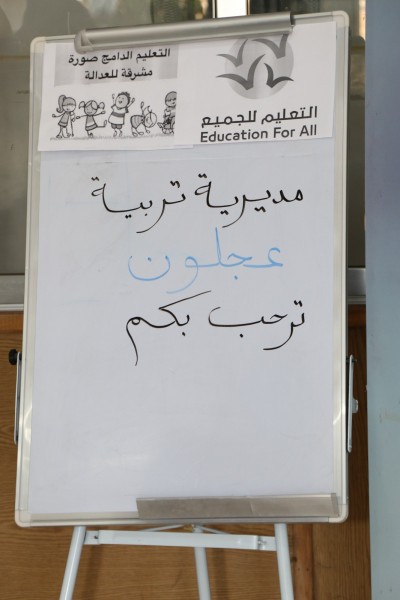 التعليم الدامج صورة
مشرقة للعدالة
التعليم للجميع
Education For All
مديرية تربية
عجلون
ترحب بكم